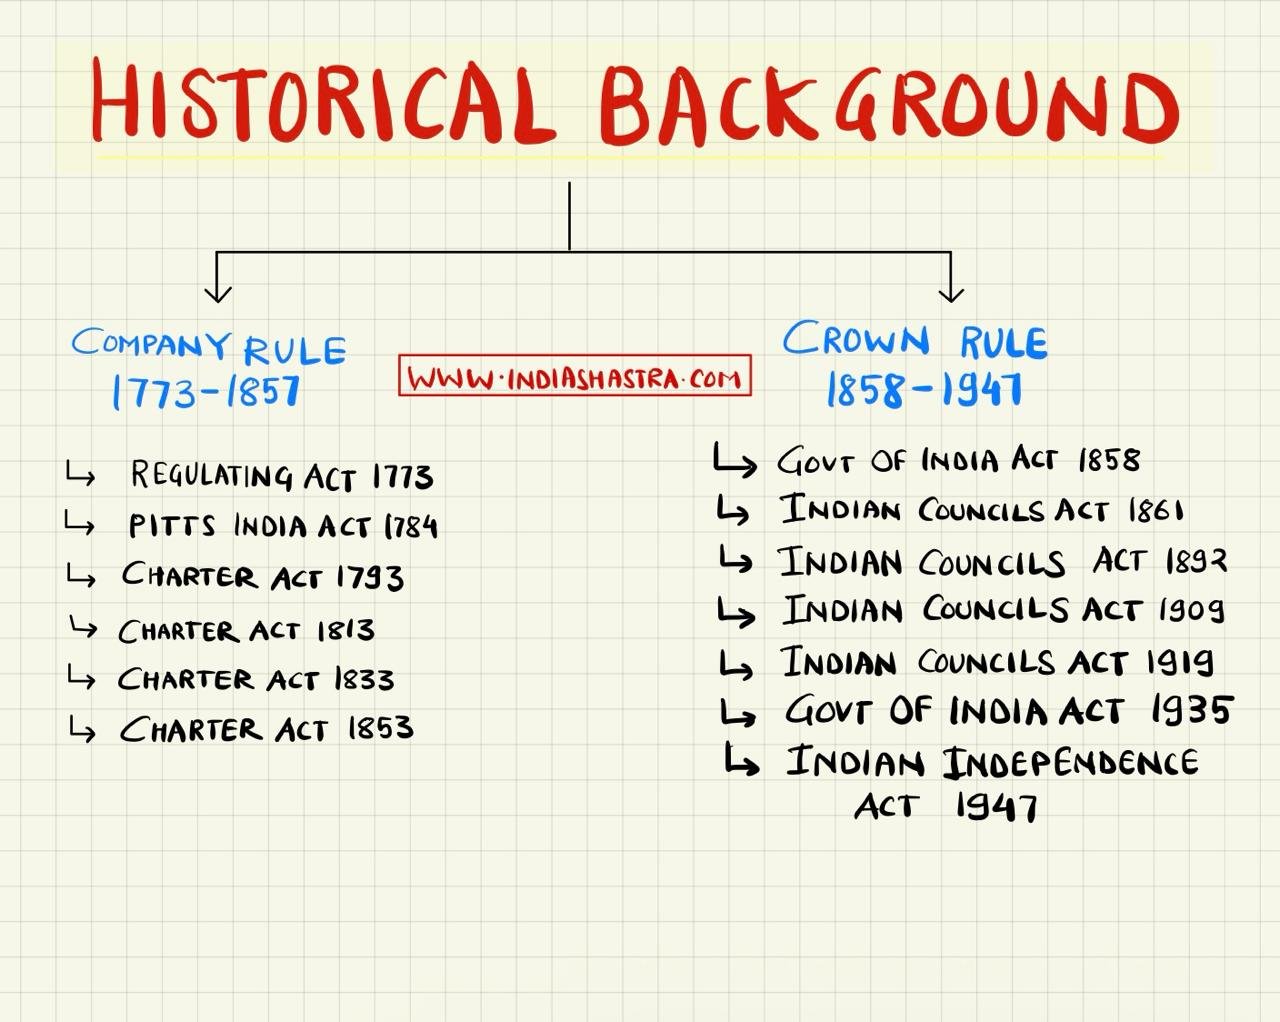 HISTORICAL BACKGROUND
COMPANY RULE
1773-1857
WWW.INDIASHASTRA.COM
CROWN RULE
1858-1947
REGULATING ACT 1773
PITTS INDIA ACT 1784
CHARTER ACT 1793
CHARTER ACT 1813
CHARTER ACT 1833
CHARTER ACT 1853
GOVT OF INDIA ACT 1858
INDIAN COUNCILS ACT 1861
INDIAN COUNCILS ACT 1892
INDIAN COUNCILS ACT 1909
INDIAN COUNCILS ACT 1919
GOVT OF INDIA ACT 1935
INDIAN INDEPENDENCE
ACT 1947